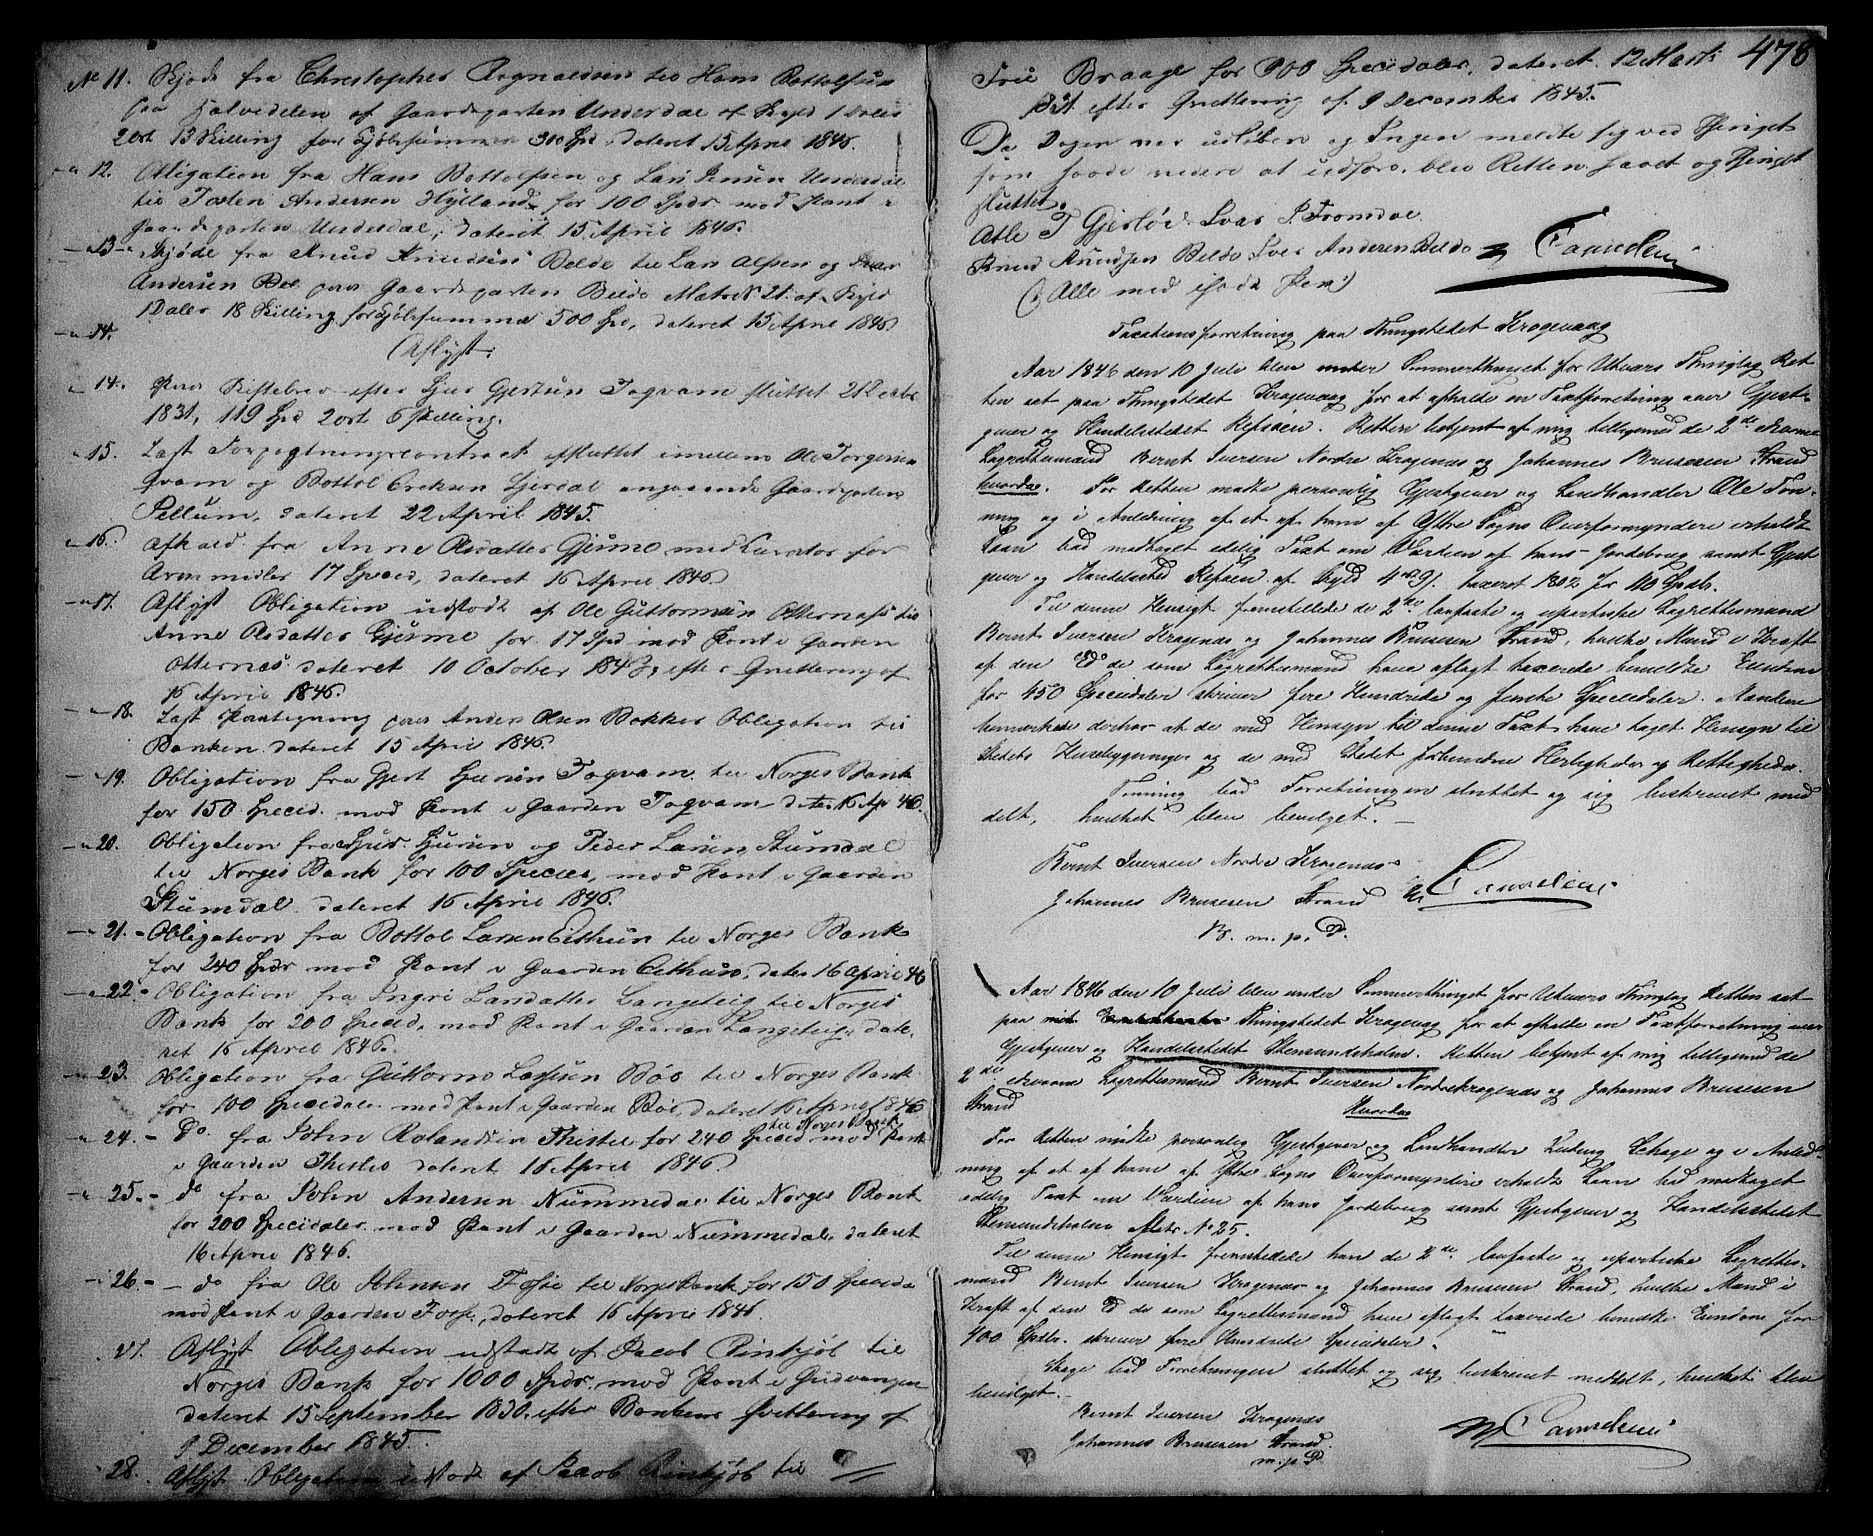 No 11. Skjøde fra Christopher Rognaldsen til Hans Bottolfsen
paa Halvedelen af Gaardeparten Underdal af Skyld 1 Daler
2 ort 13 Skilling for Kjøbesummen 300 Spd, dateret 15 April 1846.
" 12. Obligation fra Hans Bottolfsen og Lars Jensen Underdal
til Torsten Andersen Hylland for 100 Spdr mod Pant i
Gaardeparten Underdal, dateret 15 April 1846.
" 13 " Skjøde fra Knud Knudsen Belde til Lars Olsen og Iver
Andersen Bel paa Gaardeparten Belde Matr N 21. af Skyld
1 Daler 18 Skilling for Kjøbesummen 500 Spd, dateret 15 April 1846
" 14.
Aflyst:
" 14. Skiftebrev efter Sjur Gjertsen Togvam sluttet 21
1831, 119 Spd 2 ort 6 Skilling.
" 15. Læst Forpagtningscontract afsluttet imellem Ole Torgersen
Qvam og Bottol Ericksen Lærdal angaaende Gaardeparten
Pellum, dateret 22 April 1845.
" 16. Afkald fra Anne Olsdatter Gjerme med Curator for
Arvemidler 17 Specd, dateret 16 April 1846.
" 17. Aflyst Obligation udstædt af Ole Guttormsen Otternæs til
Anne Olsdatter Gjerme for 17 Spd mod Pant i Gaarden
Otternæs dateret 10 October 1843, efter Qvittering af
16 April 1846.
" 18. Læst Paategning paa Anders Olsen Bakkes Obligation til
Banken dateret 15 April 1846.
" 19. Obligation fra Gjert Sjursen Togvam til Norges Bank
for 150 Specd. mod Pant i Gaarden Togvam dater 16 Apr 46.
" 20. Obligation fra Sjur Sjursen og Peder Larsen Stumdal
til Norges Bank for 100 Species, mod Pant i Gaarden
Stumdal dateret 16 April 1846.
" 21. - Obligation fra Bottol Larsen Eithun til Norges Bank
for 240 Spdr mod Pant i Gaarden Eithun, dater 16 April 46
" 22. - Obligation fra Ingri Larsdatter Langeteig til Norges
Bank for 200 Specid, mod Pant i Gaarden Langeteig, date-
ret 16 April 1846.
" 23. Obligation fra Guttorm Lassesen Bøe til Norges Bank
for 100 Specidaler mod Pant i Gaarden Bøe, dateret 16 April 1846
" 24. - Do fra John Rolandsen Thistel til Norges Bank for 240 Specid mod Pant
i Gaarden Thistel dateret 16 April 1846.
" 25. - do fra John Andersen Nummedal til Norges Bank
for 200 Specidaler mod Pant i Gaarden Nummedal dateret
16 April 1846.
" 26. - - do fra Ole Johnsen Fosse til Norges Bank for 150 Specidr
mod Pant i Gaarden Fosse, dateret 16 April 1846.
" 27. Aflyst Obligation udstædt af Jacob Rinkjøb til
Norges Bank for 1000 Spdr mod Pant i Gudvangen
dateret 15 September 1830 efter Bankens Qvittering af
9 December 1845.
" 28. Aflyst Obligation udstædt af Jacob Rinkjøb til
478
Frie Braage for 900 Specidaler, dateret 12 Marts
1831 efter Qvittering af 9 December 1845.
Da Dagen var udløben og Ingen meldte sig ved Thinget
som havde videre at udføre, blev Retten hævet og Thinget
sluttet.
Atle T Gjerløv. Ivar P. Fromdae
Knud Knudsen Belde Iver Andersen Belde
(Alle med iholdt Pen)
Taxationsforretning paa Thingstedet Krogevaag
Aar 1846 den 10 Juli blev under Sommerthinget for Utvær Thinglag Ret-
ten sat paa Thingstedet Krogevaag for at afholde en Taxtforretning over Gjest-
giver og Handelstedet Refsøen. Retten betjent af mig tilligemed de 2de edsvorne
Lagrettemænd Bernt Iversen Nordre Krogenæs og Johannes Brusesen Strand
hvorda. For Retten mødte personlig Gjestgiver og Landhandler Ole Fon-
ning og i Anledning af et af ham af Yttre Sogns Overformyndere erholdt
Laan bad modtaget edelig Taxt om Værdien af hans Jordebrug samt Gjest-
giver og Handelsted Refsøen af Skyld taxeret 1802 for 110 Spdr.
Til denne Hensigt fremstillede de 2de lovfaste og upartiske Lagrettesmænd
Bernt Iversen Krogenæs og Johannes Brusesen Strand, hvilke Mænd i Kraft
af den Ed de som Lagrettesmænd have aflagt taxerede bemeldte Eiendom
for 450 Specidaler skriver fire Hundrede og femti Speciedaler. Mændene
bemærkede derhos at de med Hensyn til denne Taxt have taget Hensyn til
Stedets Huusbygninger og de med Stedet forbundne Herligheder og Rettigheder.
Fonning bad Forretningen sluttet og sig beskrevet med-
delt, hvilket blev bevilget. -
Bernt Iversen Nordre Krogenæs
Johannes Brusesen Strand
B. m. p. P.
Aar 1846 den 10 Juli blev under Sommerthinget for Utvær Thinglag Retten sat
paa Thingstedet Krogevaag for at afholde en Taxtforretning over
Gjestgiver og Handelstedet Steensundholm. Retten betjent af mig tilligemed de
2de edsvorne Lagrettesmænd Bernt Iversen Nordrekrogenæs og Johannes Brusesen
Strand
Hvorda
For Retten mødte personlig Gjestgiver og Landhandler Ludvig Schage og i Anled-
ning af et af ham af Yttre Sogns Overformyndere erholdt Laan bad modtaget
edelig Taxt om Værdien af hans Jordebrug samt Gjestgiver og Handelstedet
Steensundholm Matr. No 25.
Til denne Hensigt fremstillede han de 2de lovfaste og upartiske Lagrettes-
mænd Bernt Iversen Krogenæs og Johannes Brusesen Strand, hvilke Mænd i
Kraft af den Ed de som Lagrettesmænd have aflagt taxerede bemeldte Eiendom for
400 Spdr. skriver fire Hundrede Specidaler.
Skage bad Forretningen sluttet og sig beskrevet meddelt, hvilket blev
bevilget. -
Bernt Iversen Krogenæs
Johannes Brusesen Strand.
m. p P